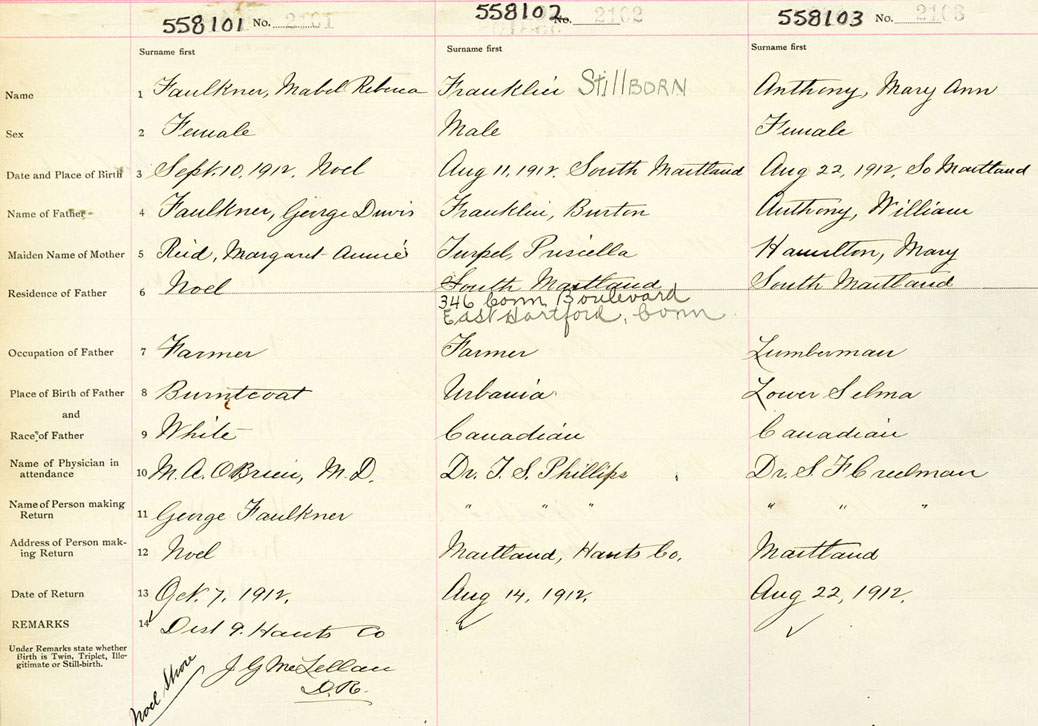 558101 No. 2101 558102 No. 2102 558103 No. 2103
Surname first Surname first Surname first
Name 1 Faulkner, Mabel Rebecca Franklin StillBORN Anthony, Mary Ann
Sex 2 Female Male Female
Date and Place of Birth 3 Sept. 10, 1912. Noel Aug 11, 1912. South Maitland Aug 22, 1912, So Maitland
Name of Father 4 Faulkner, George Davis Franklin, Burton Anthony, William
Maiden Name of Mother 5 Reid, Margaret Annie Turpel, Priscella Hamilton, Mary
Residence of Father 6 Noel South Maitland South Maitland
346 Conn Boulevard
East Hartford, Conn
Occupation of Father 7 Farmer Farmer Lumberman
Place of Birth of Father 8 Burntcoat Urbania Lower Selma
and
Race of Father 9 White Canadian Canadian
Name of Physician in
attendance 10 M. A. O'Brien, M.D. Dr. T. S. Phillips Dr. S F Creelman
Name of Person making
Return 11 George Faulkner " " " " " "
Address of Person mak-
ing Return 12 Noel Maitland, Hants Co. Maitland
Date of Return 13 Oct. 7, 1912. Aug 14, 1912. Aug 22, 1912.
REMARKS 14 Dist 9. Hants Co
Under Remarks state whether
Birth is Twin, Triplet, Ille-
gitimate or Still-birth.
J G McLellan
D.R.
Noel Shore